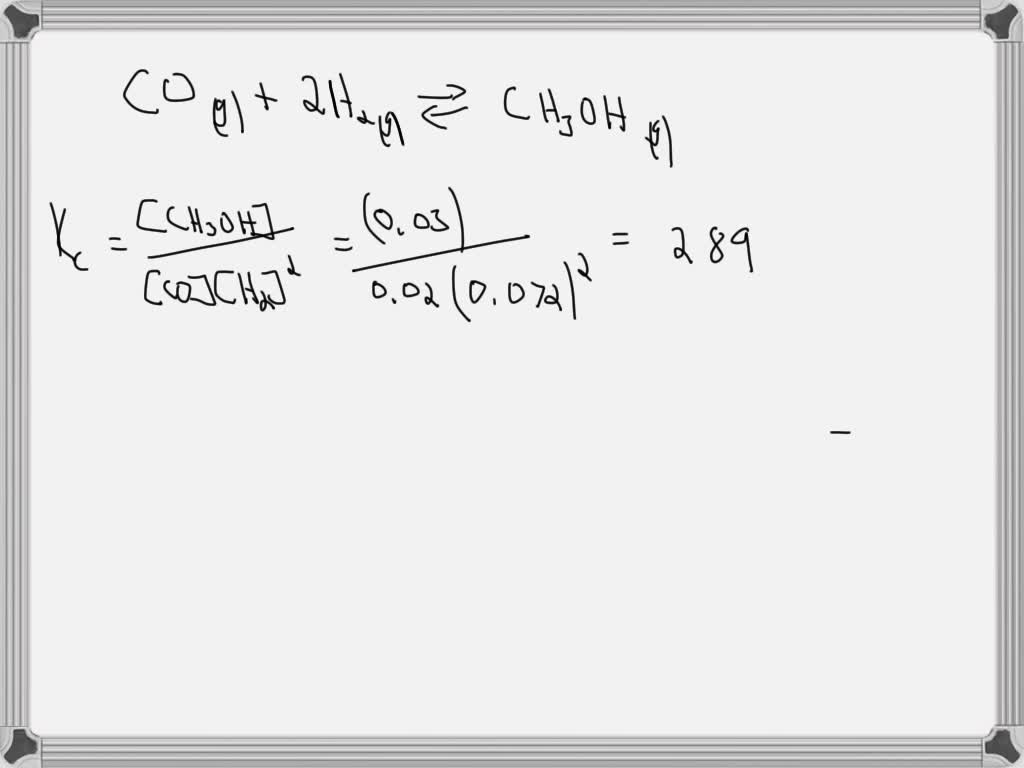 CO(g) + 2H₂(g) ⇌ CH₃OH(g)
Kc = [CH₃OH] / [CO][H₂]² = (0.03) / 0.02(0.072)² = 289
–